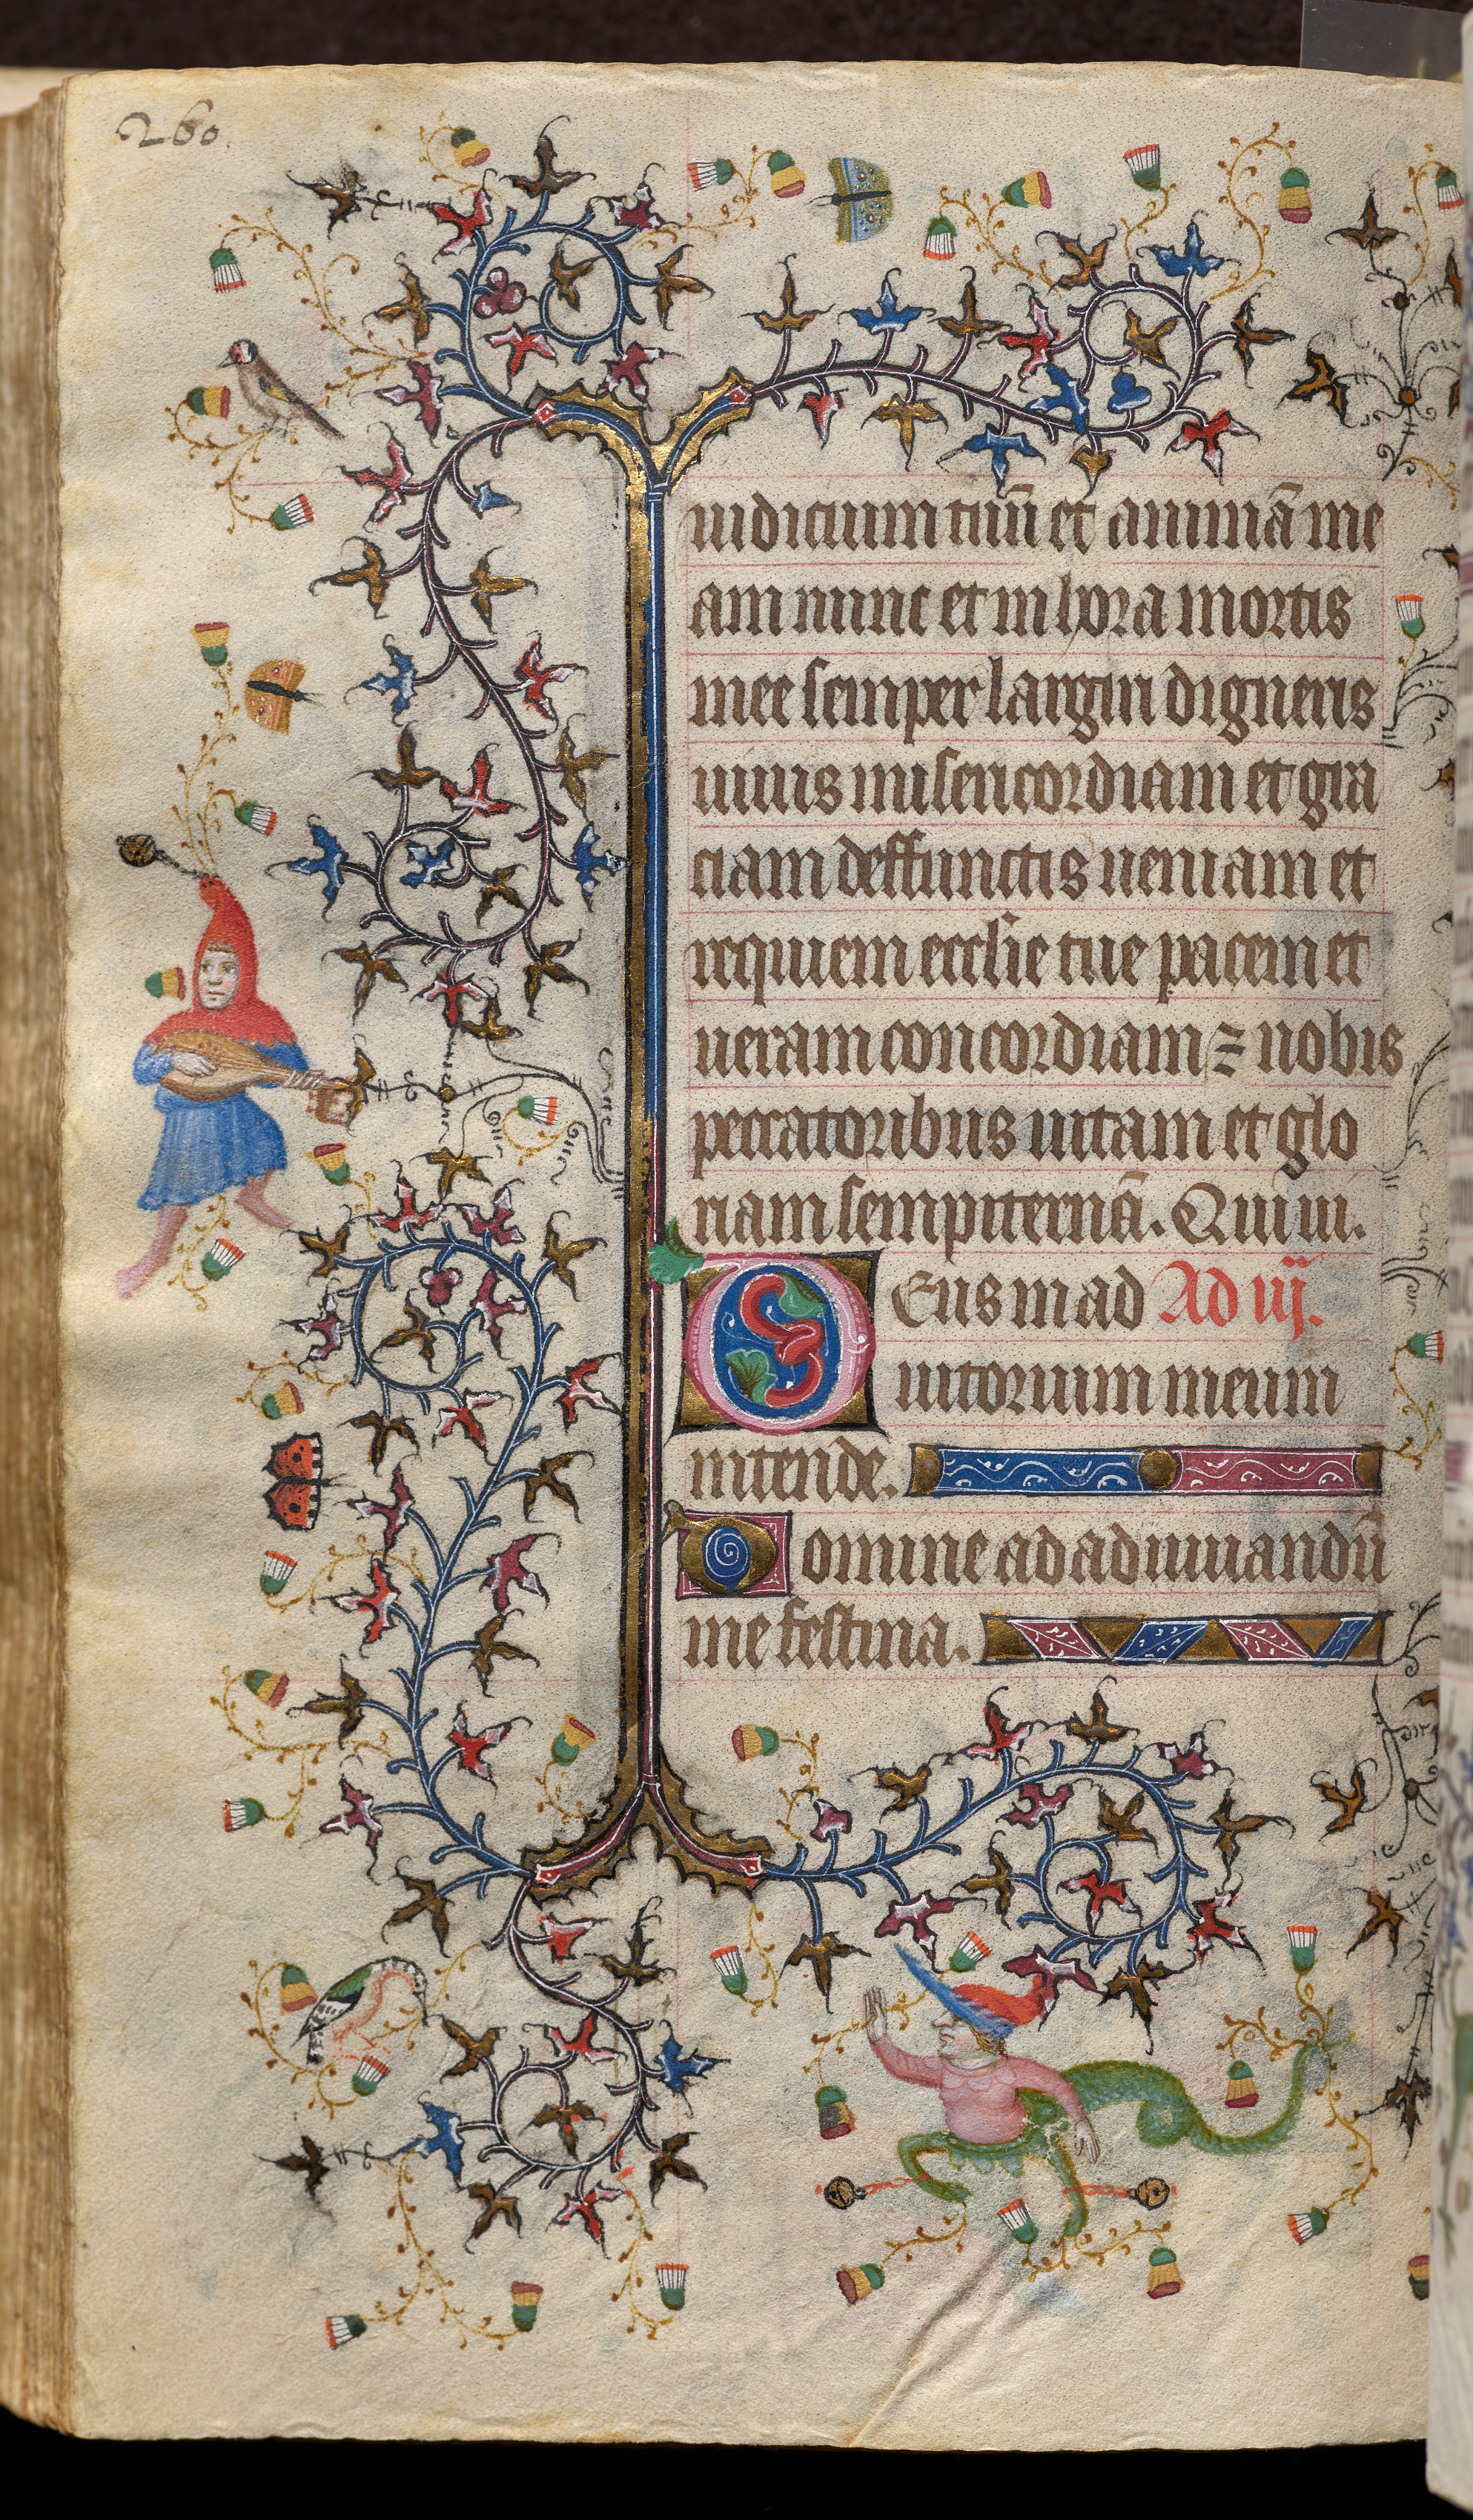 260.
iudicium tuū et animā me
am nunc et in hora mortis
mee semper largiri digneris
uiuis misericordiam et gra
ciam deffunctis ueniam et
requiem ecclīe tue pacem et
ueram concordiam ⁊ nobis
peccatoribus uitam et glo
riam sempiternā. Qui ui.
Deus in ad Ad iij.
iutorium meum
intende.
Domine ad adiuuandū
me festina.